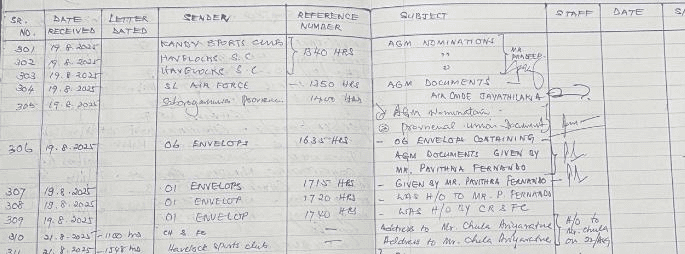 SR. NO. DATE RECEIVED LETTER DATED SENDER REFERENCE NUMBER SUBJECT STAFF DATE
301 19.8.2025 KANDY SPORTS CLUB 1340 HRS AGM NOMINATIONS MR PRADEEP
302 19.8.2025 HAVELOCKS S.C. "
303 19.8.2025 HAVELOCKS S.C. "
304 19.8.2025 SL AIR FORCE - 1350 HRS AGM DOCUMENTS
AIR CMDE JAYATHILAKA
305 19.8.2025 Sabaragamuwa Province 1400 HRS ① AGM Nomination
② provincial union Document
306 19.8.2025 06 ENVELOPS 1635 HRS - 06 ENVELOP CONTAINING
AGM DOCUMENTS GIVEN BY
MR. PAVITHRA FERNANDO
307 19.8.2025 01 ENVELOPS 1715 HRS - GIVEN BY MR. PAVITHRA FERNANDO
308 19.8.2025 01 ENVELOPS 1720 HRS - WAS H/O TO MR. P. FERNANDO
309 19.8.2025 01 ENVELOP 1740 HRS - WAS H/O BY CR & FC
310 21.8.2025 - 1100 hrs CH & FC — Address to Mr. Chula Ariyaratne H/O to Mr. Chula on 22/Aug
311 21.8.2025 - 1548 hrs Havelock Sports club — Address to Mr. Chula Ariyaratne